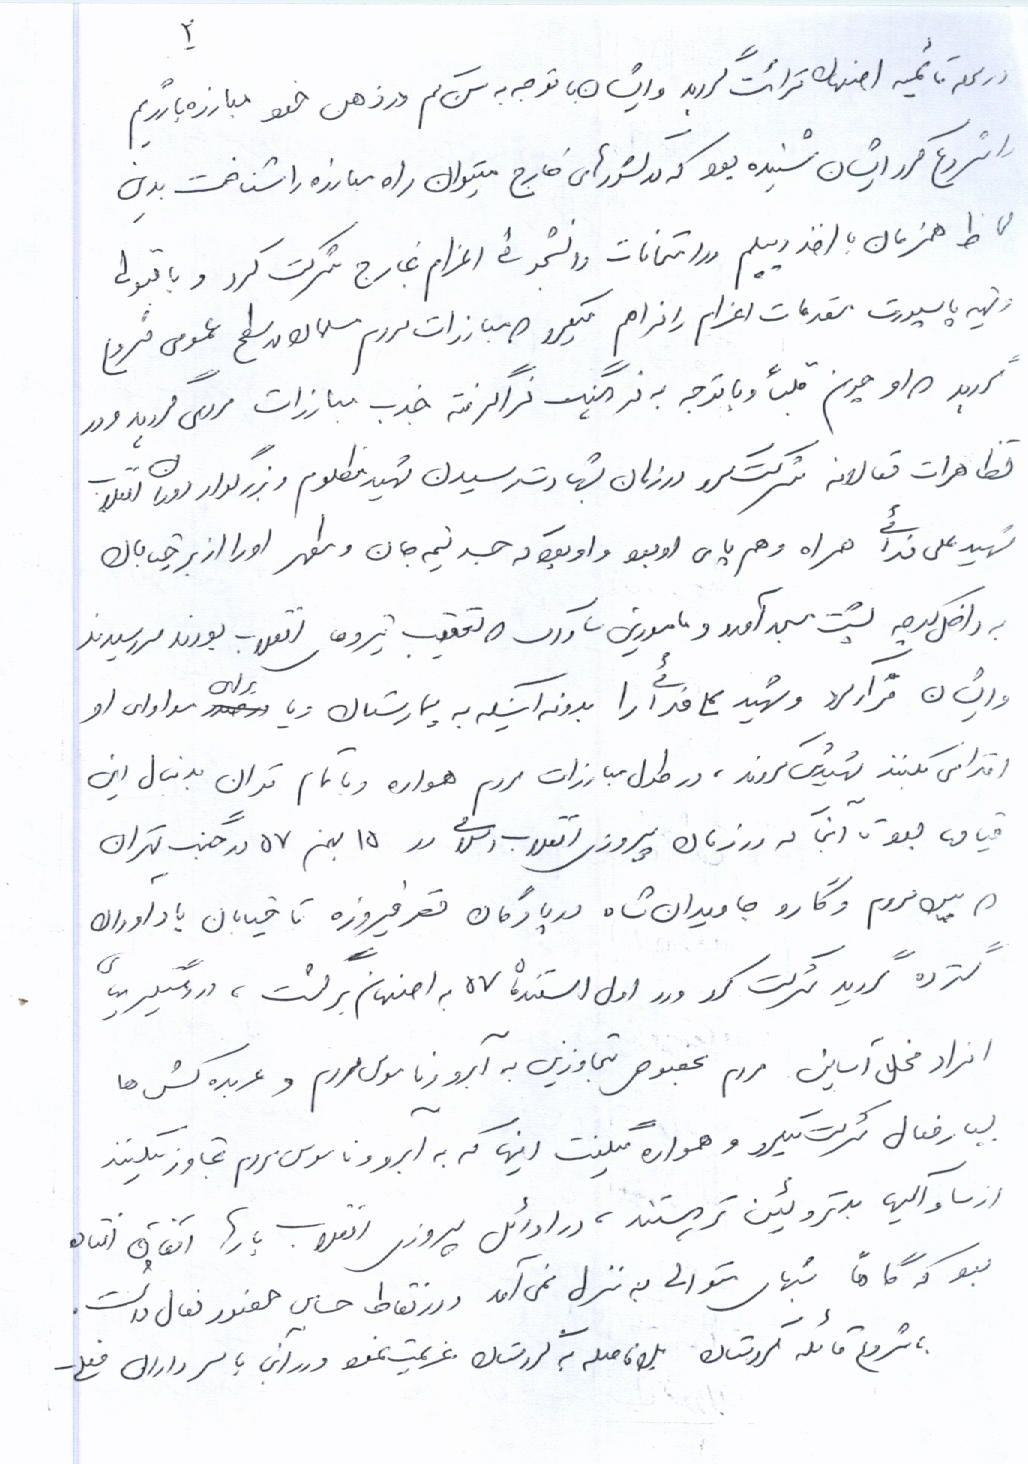 ۲
در محله قائمیه اصفهان قرائت گردید و ایشان با توجه به سن کم در ذهن خود مبارزه با رژیم
را شروع کرد ایشان شنیده بود که در کشورهای خارج میتوان راه مبارزه را شناخت بدین
لحاظ همزمان با اخذ دیپلم در امتحانات دانشجوئی اعزام بخارج شرکت کرد و با قبولی
و تهیه پاسپورت مقدمات اعزام را فراهم میکرد که مبارزات مردم مسلمان در سطح عمومی شروع
گردید که او چون قلبأ و با توجه به فرهنگ فرا گرفته جذب مبارزات مردمی گردید و در
تظاهرات فعالانه شرکت کرد در زمان بشهادت رسیدن شهید مظلوم و بزرگوار دوران انقلاب
شهید علی فدائی همراه و هم پای او بود و او بود که جسد نیمه جان و مطهر او را از بر خیابان
به داخل کوچه پشت مسجد آورد و مامورین ساواک که تعقیب نیروهای انقلاب بودند سر رسیدند
و ایشان فرار کرد و شهید علی فدائی را بدون اینکه به بیمارستان و یا برای مداوای او
اقدامی بکنند شهیدش کردند، در طول مبارزات مردم همواره و با تمام توان بدنبال این
قیامها بود تا آنجا که در زمان پیروزی انقلاب اسلامی در ۱۵ بهمن ۵۷ در جنگ تهران
که بین مردم و گارد جاویدان شاه در پادگان قصر فیروزه تا خیابان یادآوران
گسترده گردید شرکت کرد و در اول اسفندماه ۵۷ به اصفهان برگشت، در دستگیریهای
افراد مخل آسایش مردم بخصوص متجاوزین به آبرو و ناموس مردم و عربده کش ها
بسیار فعال شرکت میکرد و همواره میگفت اینها که به آبرو و ناموس مردم تجاوز میکنند
از ساواکیها بدتر و پست تر هستند، در اوائل پیروزی انقلاب بارها اتفاق افتاده
بود که گاهاً شبهای متوالی به منزل نمی آمد و در نقاط حساس حضور فعال داشت.
با شروع غائله کردستان بلافاصله به کردستان عزیمت نمود و در آنجا با سردارانی